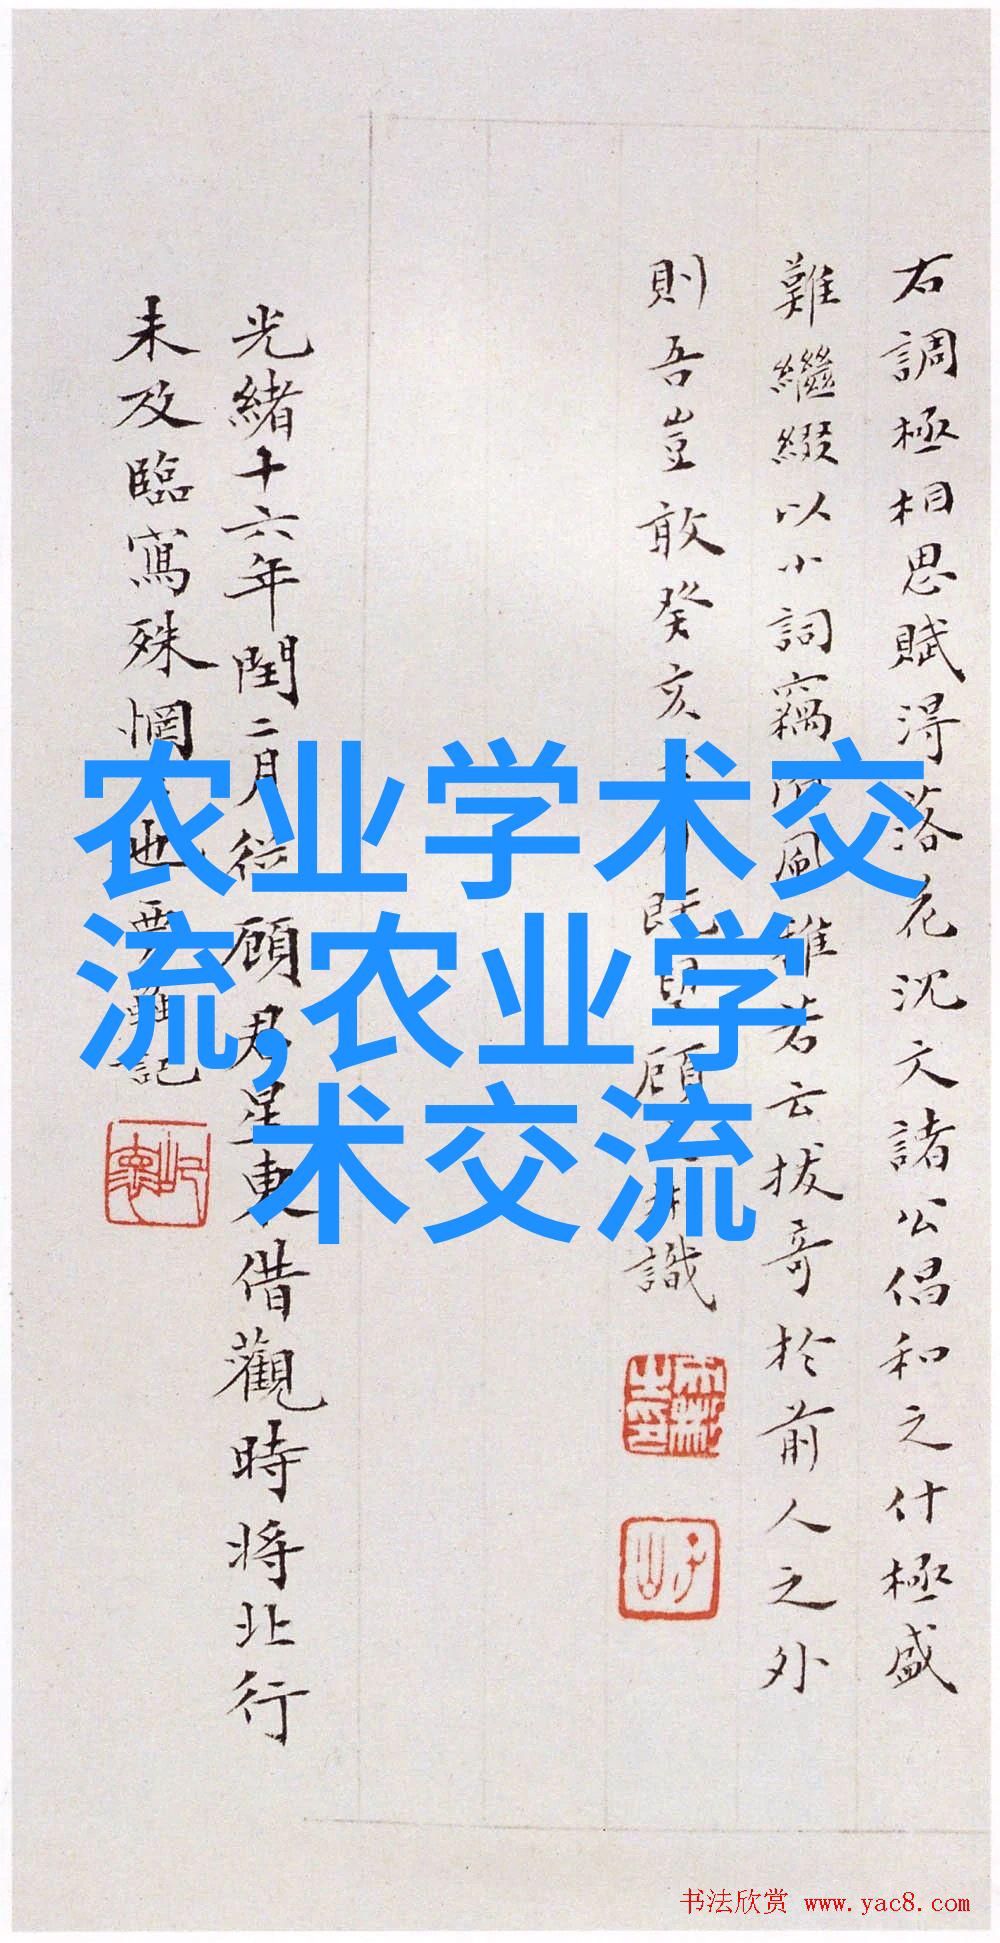 右調極相思賦得落花沈文諸公倡和之什極盛
難繼綴以小詞竊風雅若云拔奇於前人之外
則吾豈敢癸亥既望顧識
光緒十六年閏二月從顧君星東借觀時將北行
未及臨寫殊惘也記
农业学术交
流,农业学
术交流
书法欣赏 www.yac8.com